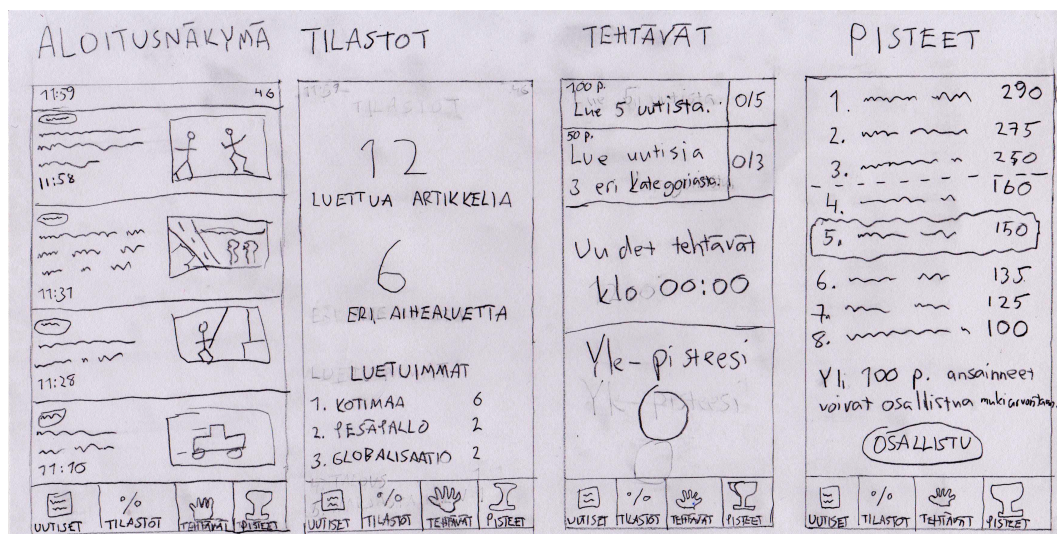 ALOITUSNÄKYMÄ
11:59 46
11:58
11:31
11:28
11:10
UUTISET TILASTOT TEHTÄVÄT PISTEET
TILASTOT
12
LUETTUA ARTIKKELIA
6
ERI AIHEALUETTA
LUETUIMMAT
1. KOTIMAA 6
2. PESÄPALLO 2
3. GLOBALISAATIO 2
UUTISET % TILASTOT TEHTÄVÄT PISTEET
TEHTÄVÄT
100 p.
Lue 5 uutista. 0/5
50 p.
Lue uutisia 0/3
3 eri kategoriasta.
Uudet tehtävät
klo 00:00
Yle-pisteesi
UUTISET % TILASTOT TEHTÄVÄT PISTEET
PISTEET
1. 290
2. 275
3. 250
4. 160
5. 150
6. 135
7. 125
8. 100
Yli 100 p. ansainneet
voivat osallistua mukiarvontaan.
OSALLISTU
UUTISET % TILASTOT TEHTÄVÄT PISTEET